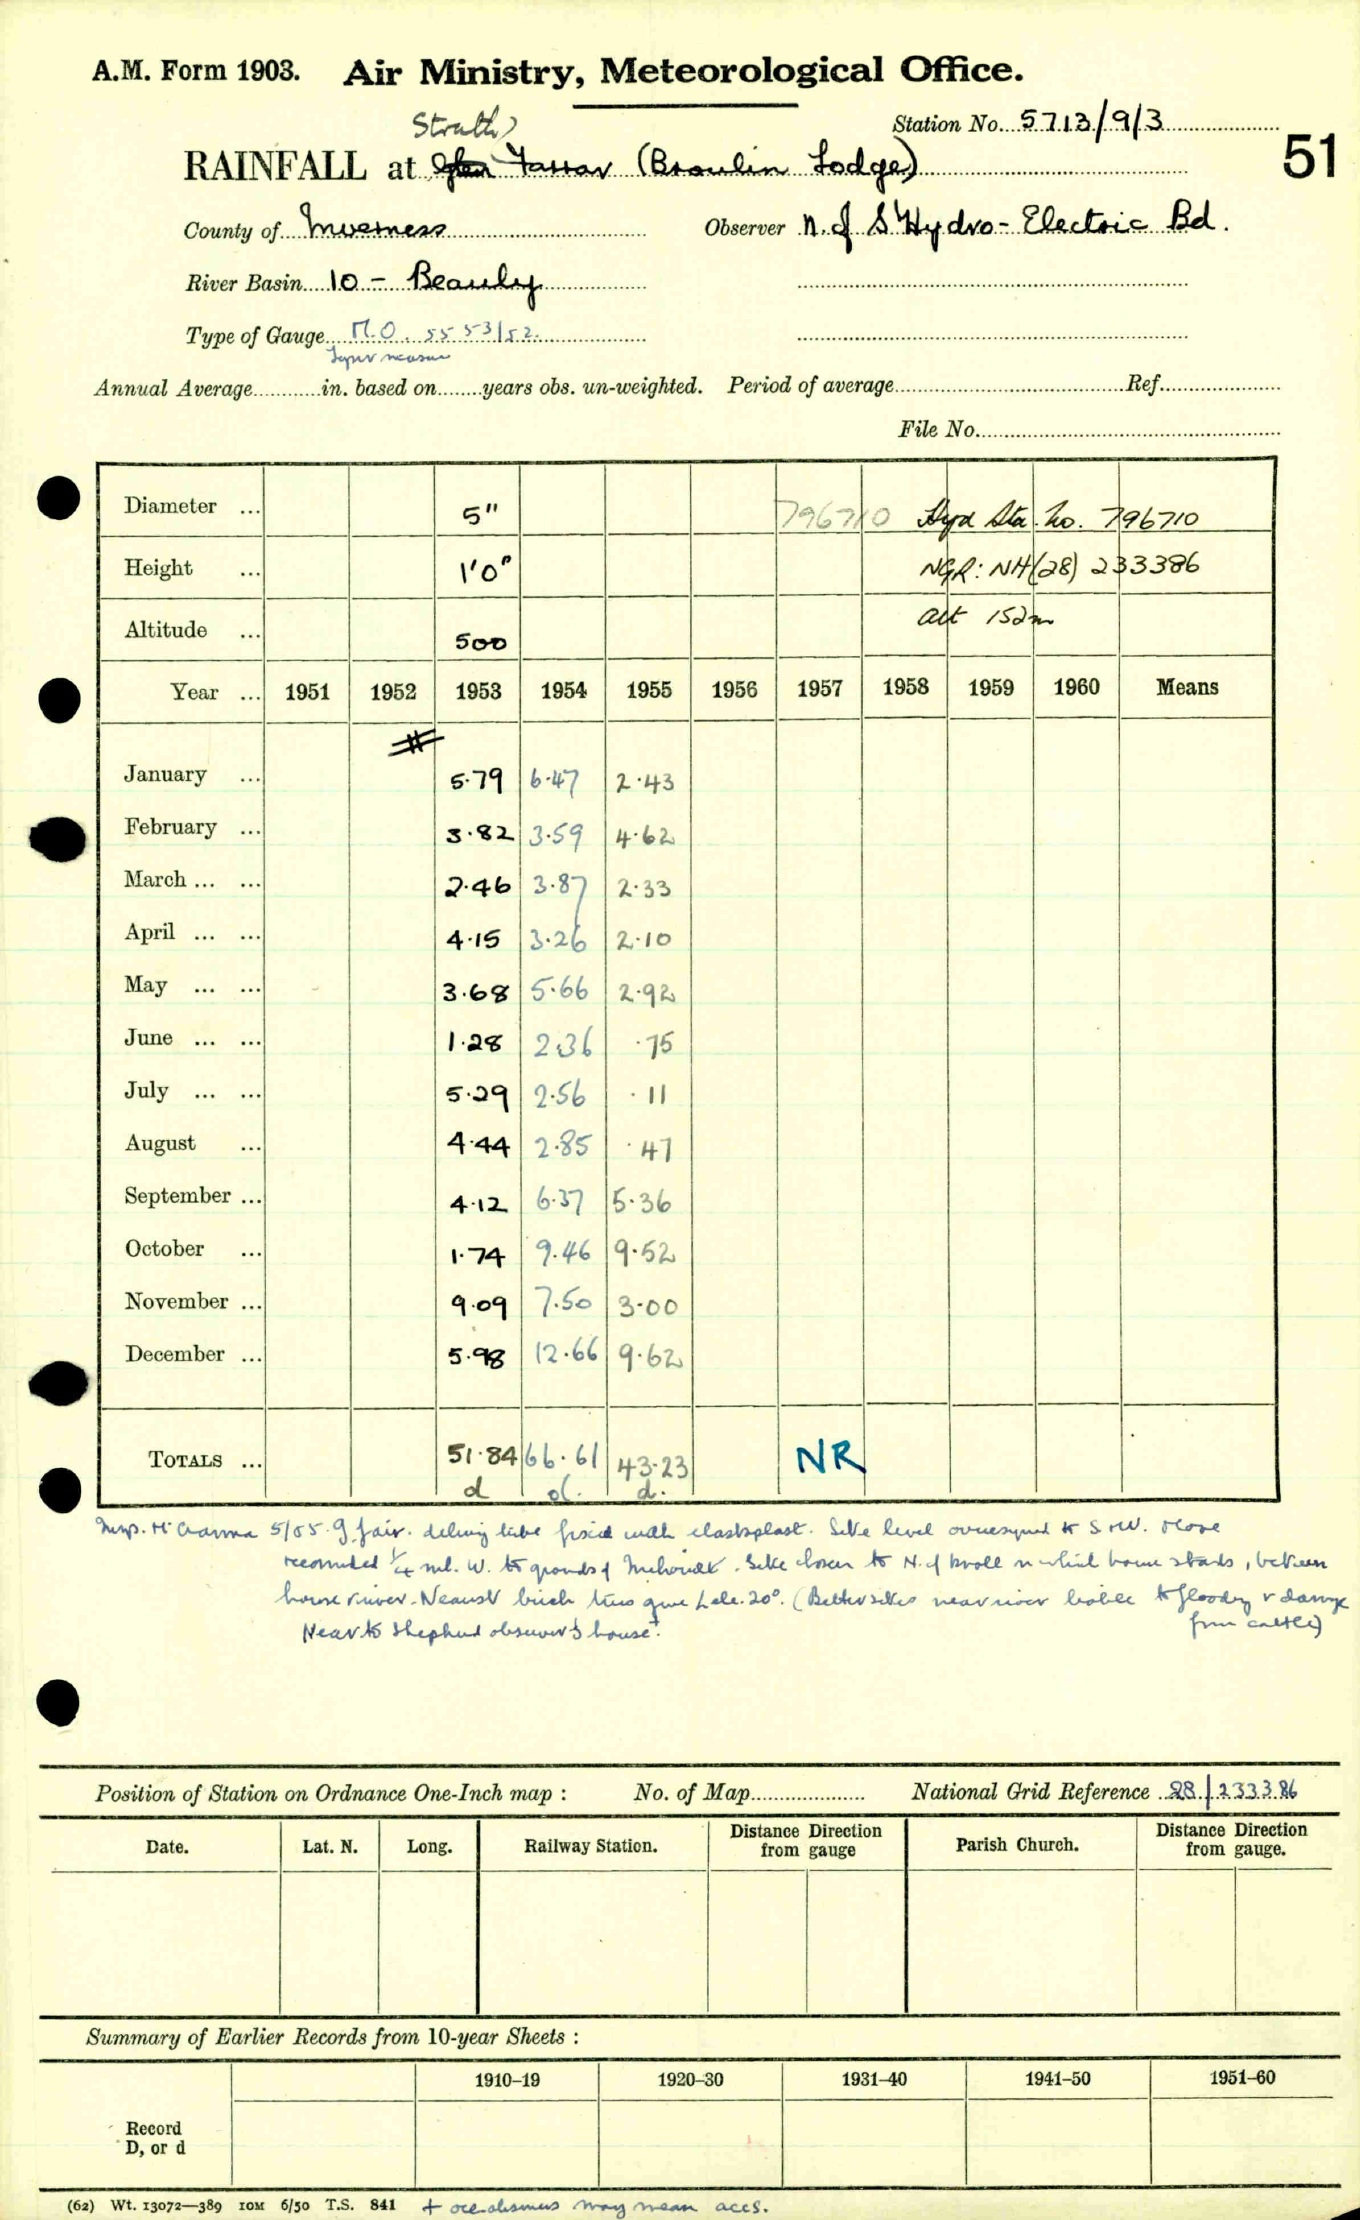 A.M. Form 1903. Air Ministry, Meteorological Office.
Strath
Station No. 5713/9/3
51
RAINFALL at Glen Farrar (Braulin Lodge)
County of Inverness Observer N. of S Hydro-Electric Bd.
River Basin 10 - Beauly
Type of Gauge M.O. 5553/52.
Taper measure
Annual Average in. based on years obs. un-weighted. Period of average Ref.
File No.
Diameter ... 5" 796710 Hyd Sta. No. 796710
Height ... 1'0" NGR: NH(28) 233386
Altitude ... 500 alt 152m
Year ... 1951 1952 1953 1954 1955 1956 1957 1958 1959 1960 Means
January ... 5.79 6.47 2.43
February ... 3.82 3.59 4.62
March ... ... 2.46 3.87 2.33
April ... ... 4.15 3.26 2.10
May ... ... 3.68 5.66 2.92
June ... ... 1.28 2.36 .75
July ... ... 5.29 2.56 .11
August ... 4.44 2.85 .47
September ... 4.12 6.37 5.36
October ... 1.74 9.46 9.52
November ... 9.09 7.50 3.00
December ... 5.98 12.66 9.62
TOTALS ... 51.84 66.61 43.23 NR
d d. d.
Insp. 5/55. G fair. tube fixed with elastoplast. Site level to S & W. Move
recommended 1/4 ml. W. to grounds of . Site chosen to N. of knoll on which house stands, between
house & river. Nearest birch trees give 20°. (Better sites near river liable to flooding & damage
from cattle)
Near to Shepherd observer's house.
Position of Station on Ordnance One-Inch map : No. of Map National Grid Reference 28/233386
Date. Lat. N. Long. Railway Station. Distance from gauge Direction Parish Church. Distance from gauge. Direction
Summary of Earlier Records from 10-year Sheets :
1910–19 1920–30 1931–40 1941–50 1951–60
Record
D, or d
(62) Wt. 13072—389 10M 6/50 T.S. 841 + may mean accs.